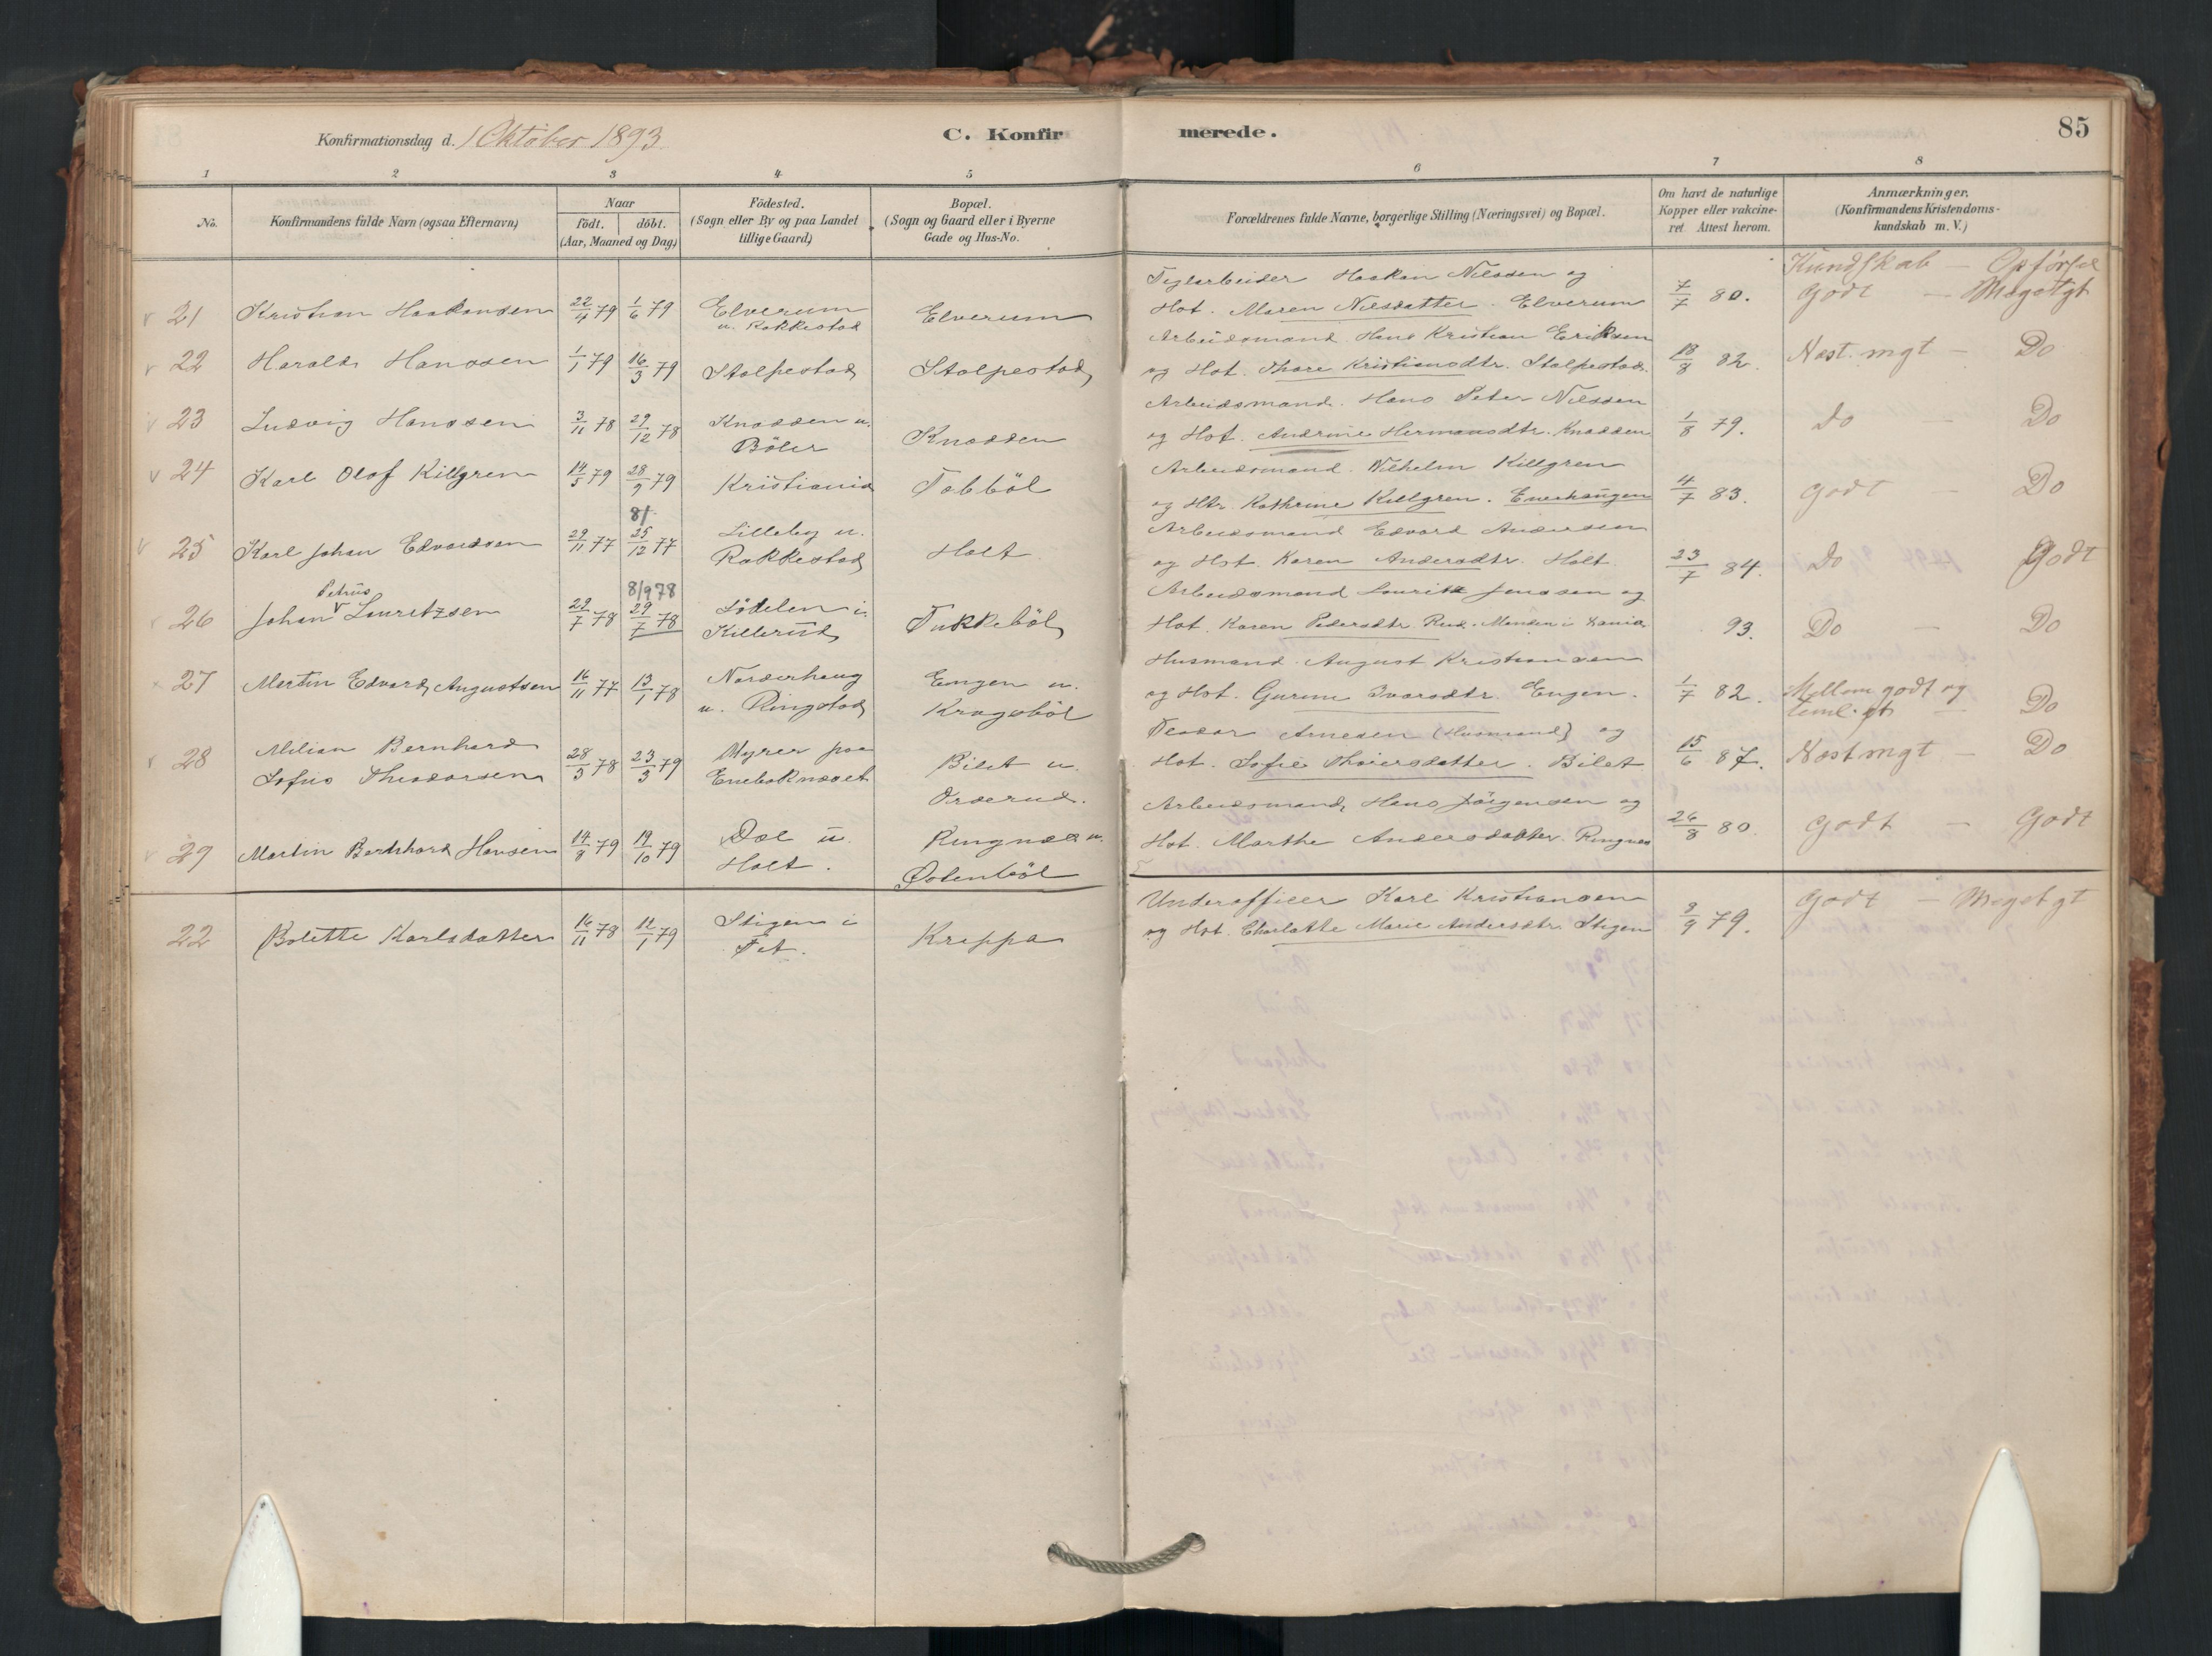 Konfirmationsdag d. 1 Oktober 1893
C. Konfirmerede.
85
1 2 3 4 5 6 7 8
No.
Konfirmandens fulde Navn (ogsaa Efternavn)
Naar
födt. döbt.
(Aar, Maaned og Dag)
Födested.
(Sogn eller By og paa Landet
tillige Gaard)
Bopæl.
(Sogn og Gaard eller i Byerne
Gade og Hus-No.
Forældrenes fulde Navne, borgerlige Stilling (Næringsvei) og Bopæl.
Om havt de naturlige
Kopper eller vakcine-
ret Attest herom.
Anmærkninger.
(Konfirmandens Kristendoms-
kundskab m. V.)
Kundskab — Opförsel
21 Kristian Haakansen 22/4 79 1/6 79 Elverum
u. Rakkestad
Elverum
Teglarbeider Haakan Nilssen og
Hst. Maren Nilsdatter. Elverum
7/7 80.
Godt — Megetgt
22 Harald Hanssen 1/1 79 16/3 79 Stolpestad Stolpestad
Arbeidsmand Hans Kristian Eriksen
og Hst. Thore Kristiansdtr. Stolpestad.
18/8 82.
Næst. mgt — Do
23 Ludvig Hanssen 3/11 78 29/12 78 Knadden u.
Böler
Knadden
Arbeidsmand. Hans Peter Nilssen
og Hst. Andrine Hermansdtr. Knadden
1/8 79.
Do — Do
24 Karl Olof Killgren 14/5 79 28/9 79 Kristiania Tobböl
Arbeidsmand. Vilhelm Killgren
og Htr. Kathrine Killgren. Enerhaugen
4/7 83.
Godt — Do
25 Karl Johan Edvardsen 29/11 77 8/ 25/12 77 Lilleby u.
Rakkestad
Holt
Arbeidsmand Edvard Andersen
og Hst. Karen Andersdtr. Holt
23/7 84.
Do Godt
Petrus
26 Johan Lauritzsen 29/7 78 8/9 78 29/7 78 Lödelen i
Killerud
Tukkeböl
Arbeidsmand Lauritz Jenssen og
Hst. Karen Pedersdtr.
93.
Do — Do
27 Martin Edvard Augustsen 16/11 77 13/1 78 Norderhaug
u. Ringstad
Engen u.
Kragsböl
Husmand August Kristiansen
og Hst. Gurine Ivarsdtr. Engen.
1/7 82.
Mellem godt og
teml. gt — Do
28 Milian Bernhard
Sofus Theodorsen 28/3 78 23/3 79 Myrer paa
Enebaknæset
Bilet u.
Orderud.
Teodor Arnesen (Husmand) og
Hst. Sofie Thoresdatter. Bilet
15/6 87.
Næst mgt — Do
29 Martin Bernhard Hansen 14/8 79 19/10 79 Dal u.
Holt.
Ringnæs u.
Östenböl
Arbeidsmand Hans Jörgensen og
Hst. Marthe Andersdatter. Ringnæs
26/8 80.
Godt — Godt
22 Bolette Karlsdatter 16/11 78 12/1 79 Stigen i
Fet.
Kreppa
Underofficer Karl Kristiansen
og Hst. Charlotte Marie Andersdtr. Stigen
8/9 79.
Godt — Megetgt